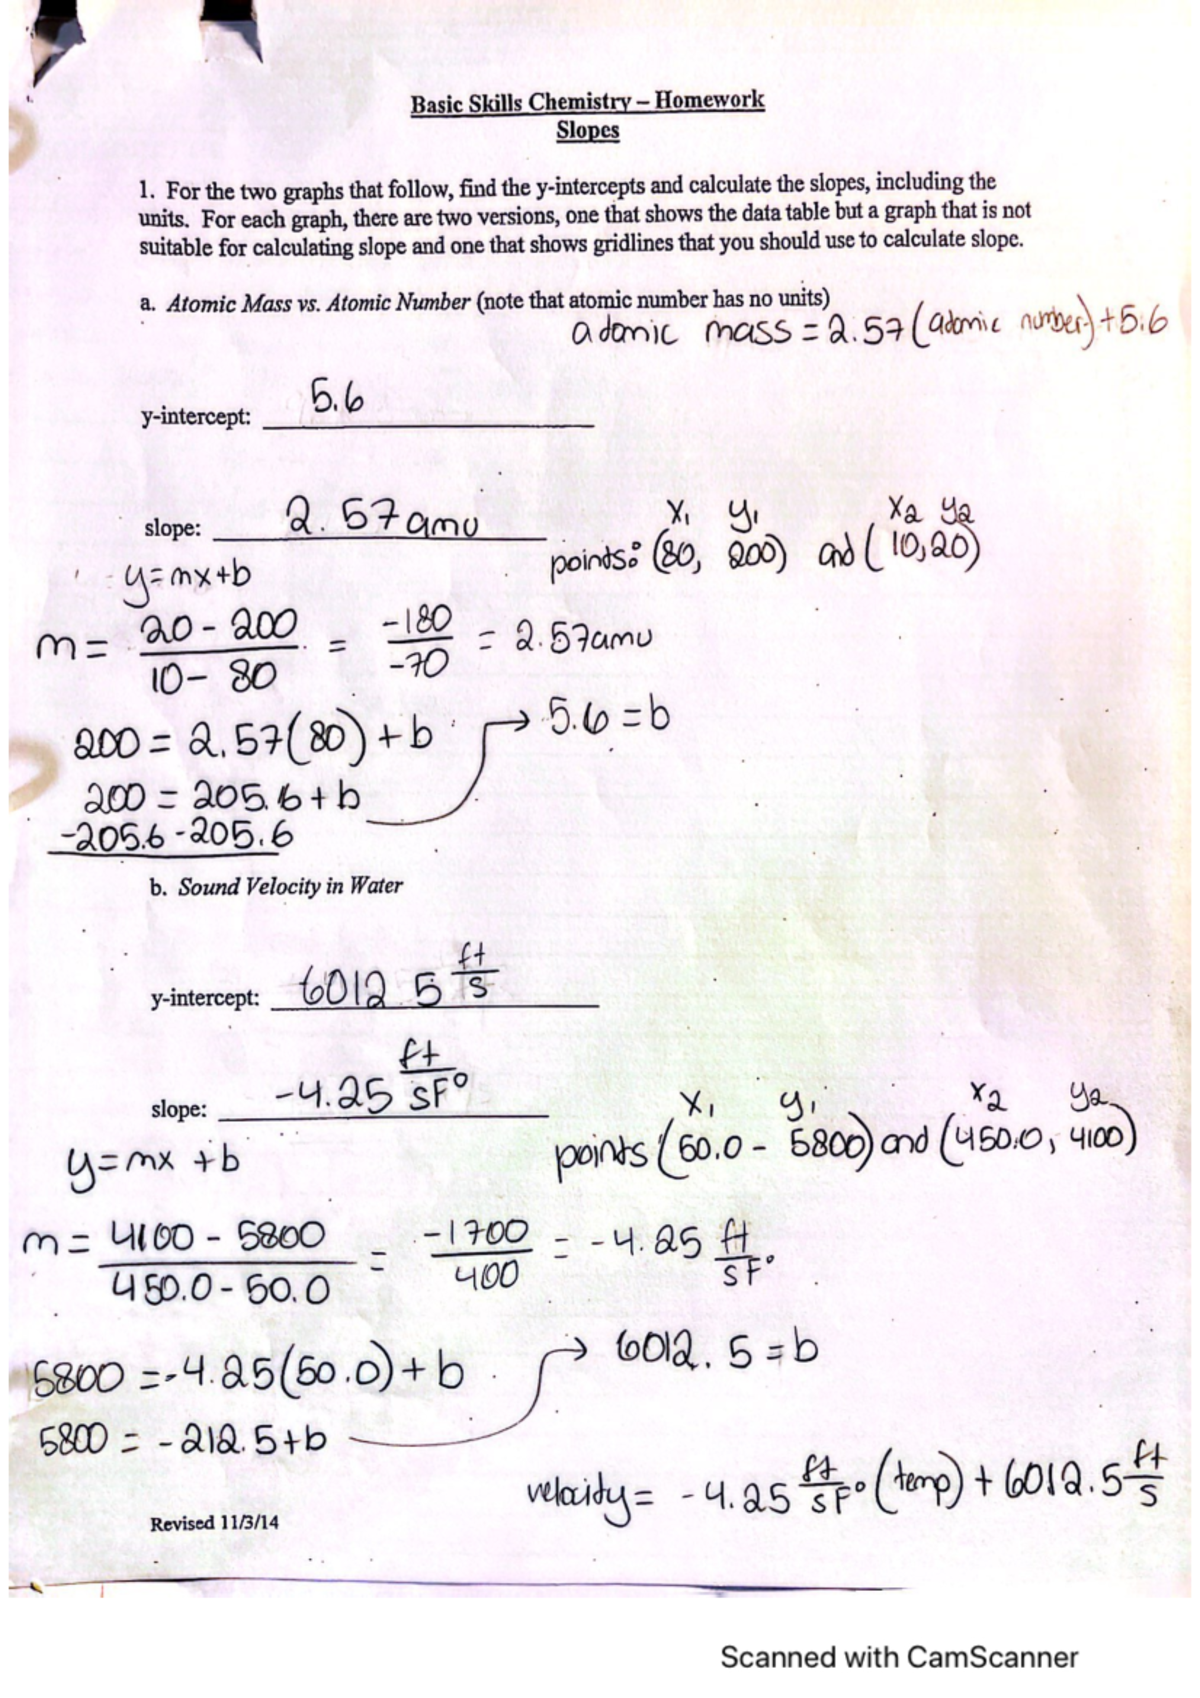 Basic Skills Chemistry – Homework
Slopes
1. For the two graphs that follow, find the y-intercepts and calculate the slopes, including the
units. For each graph, there are two versions, one that shows the data table but a graph that is not
suitable for calculating slope and one that shows gridlines that you should use to calculate slope.
a. Atomic Mass vs. Atomic Number (note that atomic number has no units)
adomic mass = 2.57 (adomic number) + 5.6
y-intercept: 5.6
slope: 2.57amu
x₁ y₁ x₂ y₂
points: (80, 200) and (10,20)
y=mx+b
m = 20 - 200 / 10 - 80 = -180 / -70 = 2.57amu
200 = 2.57(80) + b → 5.6 = b
200 = 205.6 + b
-205.6 -205.6
b. Sound Velocity in Water
y-intercept: 6012.5 ft/s
slope: -4.25 ft/sF°
x₁ y₁ x₂ y₂
points (50.0 - 5800) and (450.0, 4100)
y=mx +b
m = 4100 - 5800 / 450.0 - 50.0 = -1700 / 400 = -4.25 ft/sF°
5800 = -4.25(50.0) + b → 6012.5 = b
5800 = -212.5+b
velocity = -4.25 ft/sF° (temp) + 6012.5 ft/s
Revised 11/3/14
Scanned with CamScanner